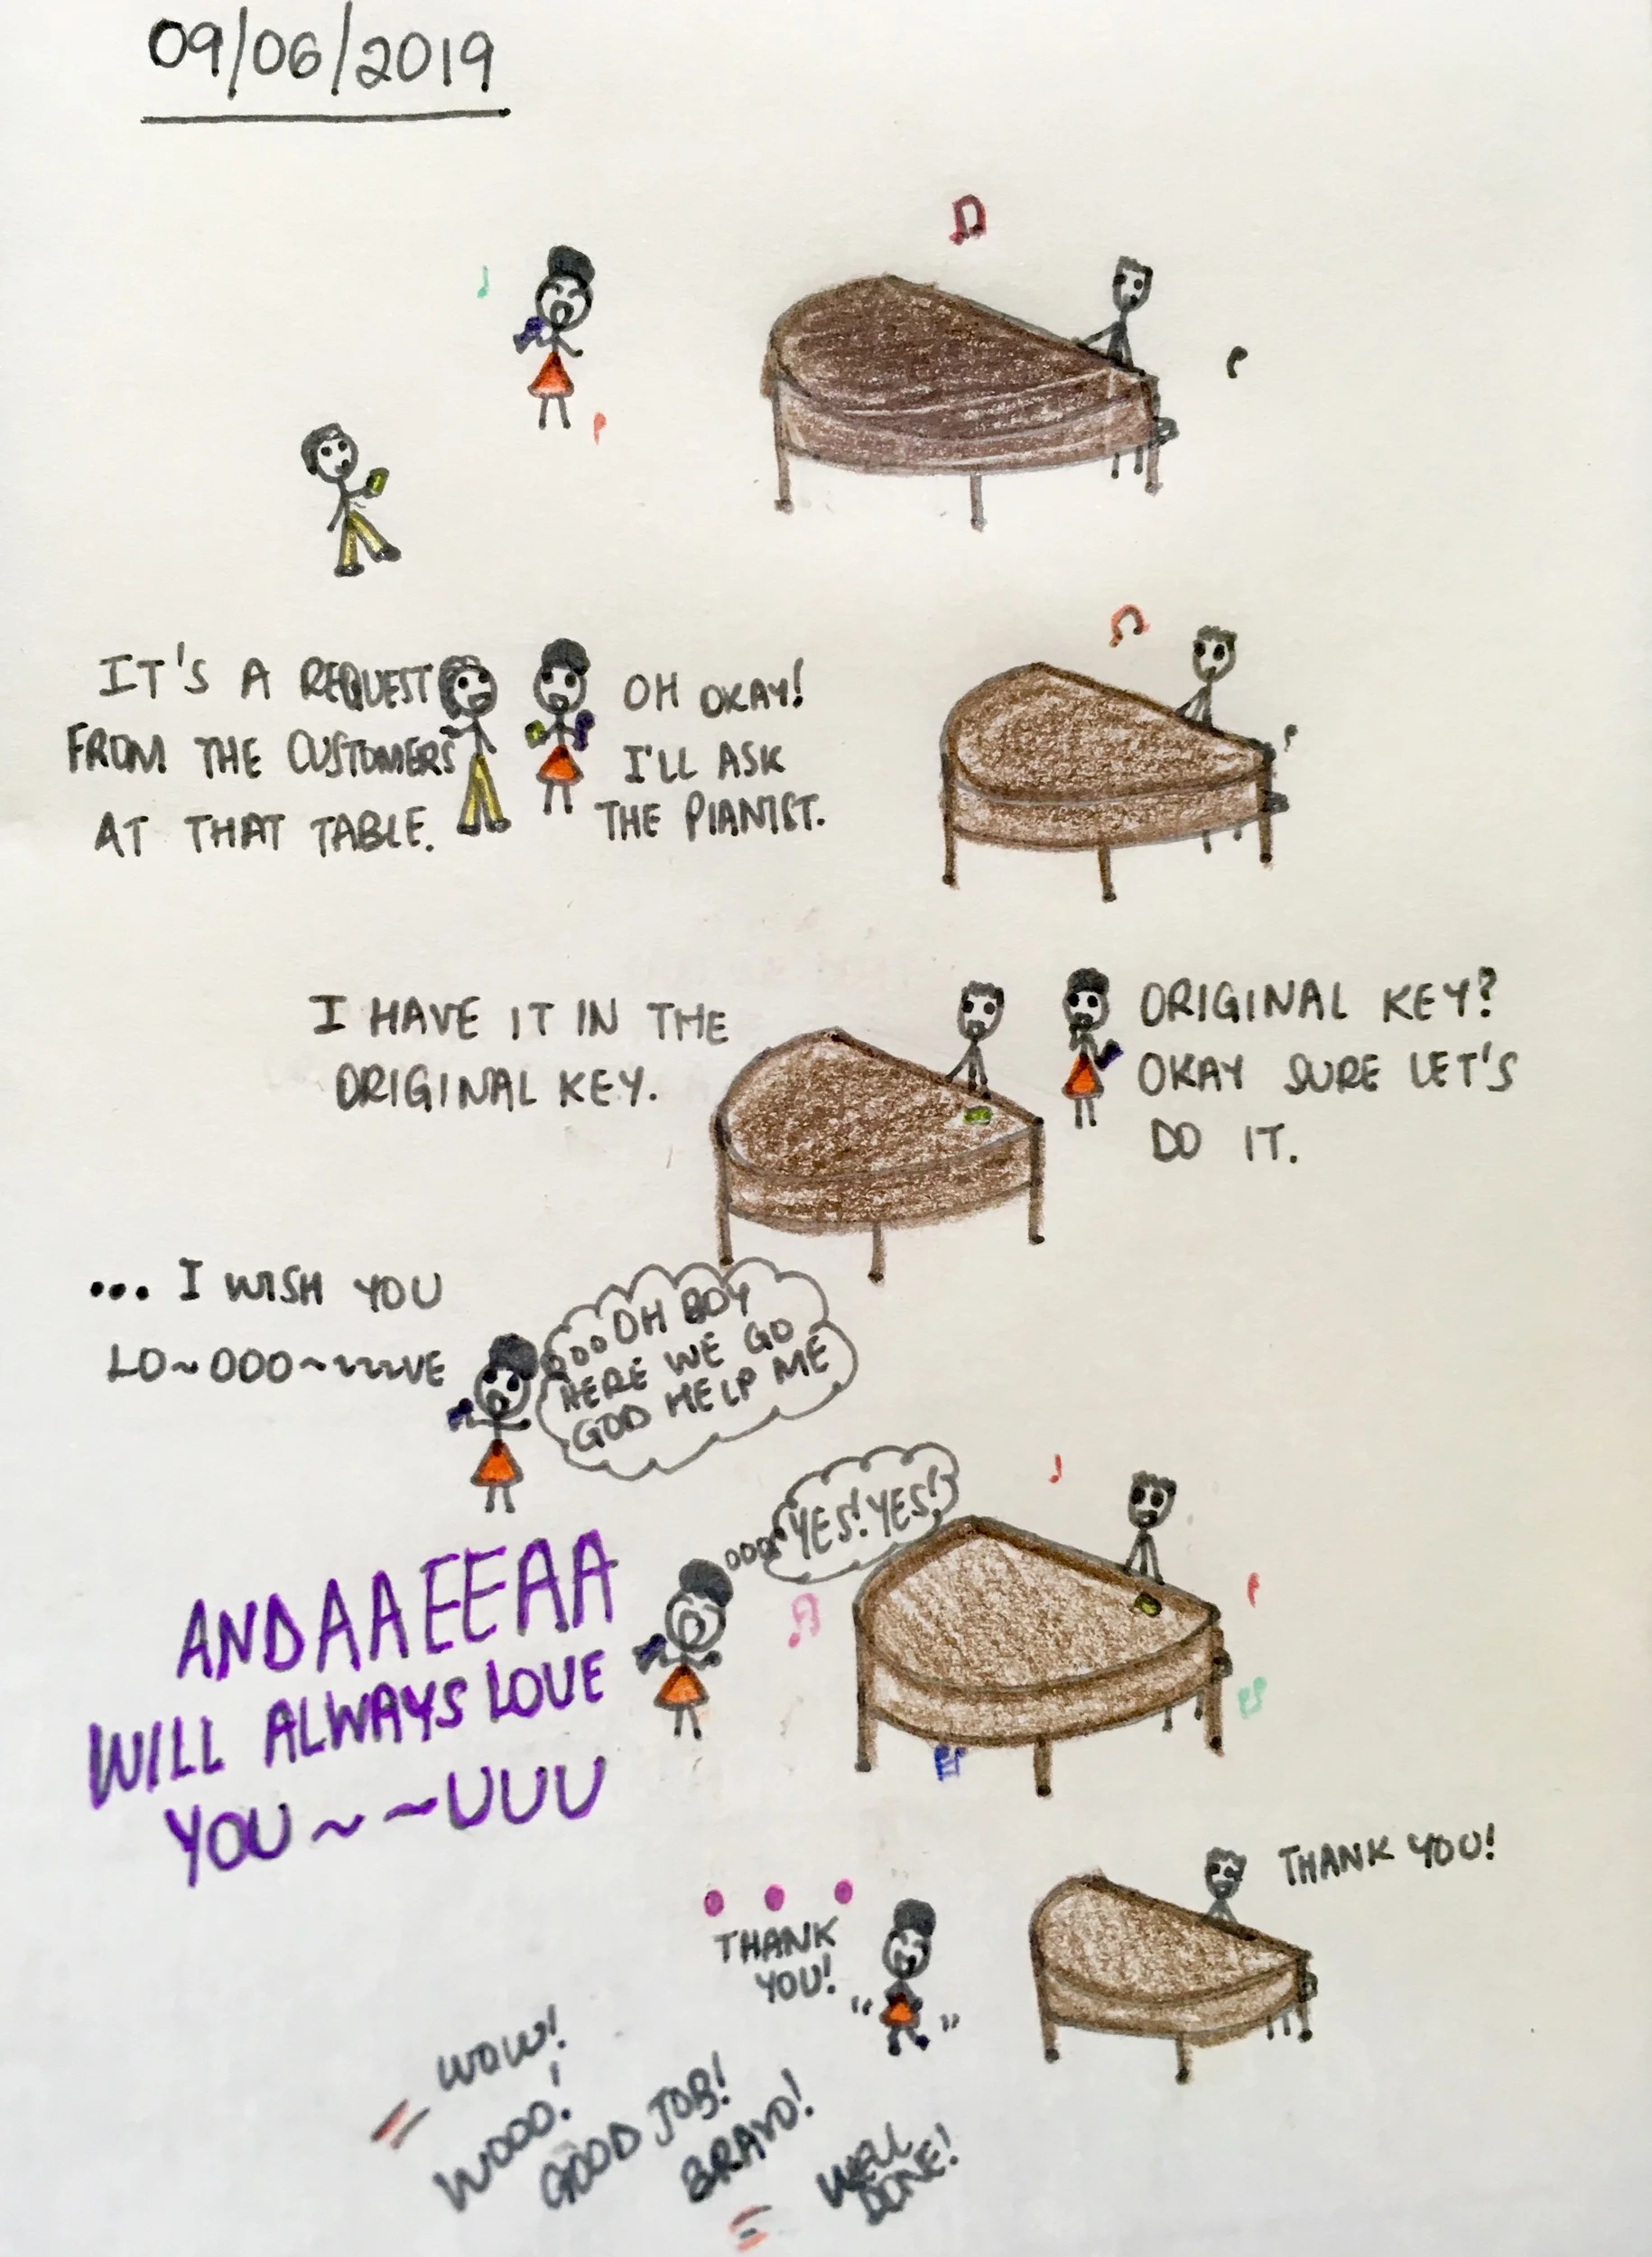 09/06/2019
IT'S A REQUEST
FROM THE CUSTOMERS
AT THAT TABLE.
OH OKAY!
I'LL ASK
THE PIANIST.
I HAVE IT IN THE
ORIGINAL KEY.
ORIGINAL KEY?
OKAY SURE LET'S
DO IT.
... I WISH YOU
LO~OOO~~~~VE
OH BOY
HERE WE GO
GOD HELP ME
YES! YES!
ANDAAEEAA
WILL ALWAYS LOVE
YOU~~UUU
THANK
YOU!
THANK YOU!
WOW!
WOOO!
GOOD JOB!
BRAVO!
WELL
DONE!